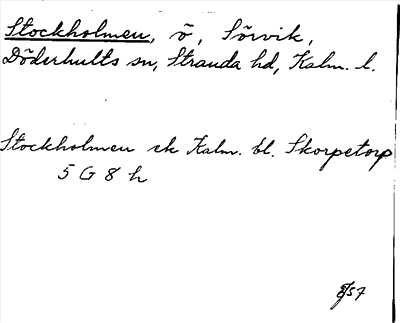 Stockholmen, ö, Sörvik,
Döderhults sn, Stranda hd, Kalm. l.
Stockholmen ek Kalm. bl. Skorpetorp
5 G 8 h